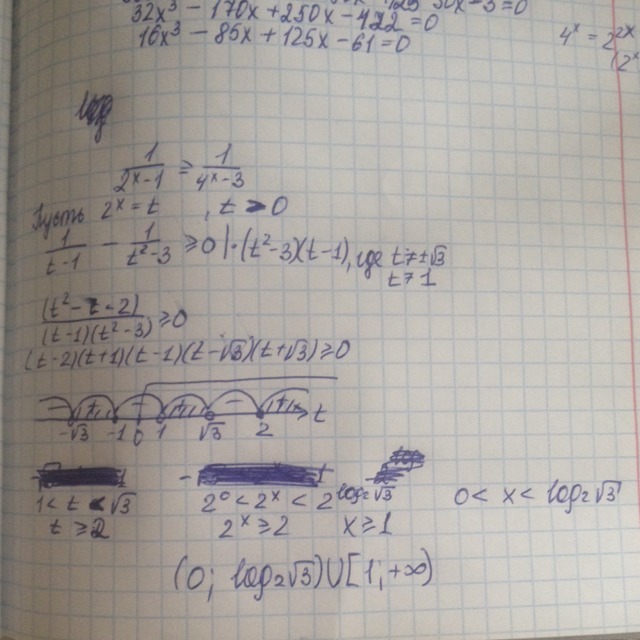 32x³ - 170x + 250x - 422 = 0
16x³ - 85x + 125x - 61 = 0
4ˣ = 2²ˣ
(2ˣ
1/(2ˣ-1) ≥ 1/(4ˣ-3)
Пусть 2ˣ = t , t > 0
1/(t-1) - 1/(t²-3) ≥ 0 | · (t²-3)(t-1), где t ≠ ±√3
t ≠ 1
(t² - t - 2)/((t-1)(t²-3)) ≥ 0
(t-2)(t+1)(t-1)(t-√3)(t+√3) ≥ 0
-√3 -1 0 1 √3 2 t
1 < t < √3 2⁰ < 2ˣ < 2^log₂√3 0 < x < log₂√3
t ≥ 2 2ˣ ≥ 2 x ≥ 1
(0; log₂√3)∪[1; +∞)